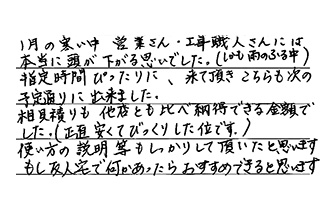 1月の寒い中 営業さん・工事職人さんには
本当に頭が下がる思いでした。(しかも雨のふる中)
指定時間ぴったりに、来て頂きこちらも次の
予定通りに出来ました。
相見積りも他店とも比べ納得できる金額で
した。(正直安くてびっくりした位です。)
使い方の説明等もしっかりして頂いたと思います
もし友人宅で何かあったらおすすめできると思います